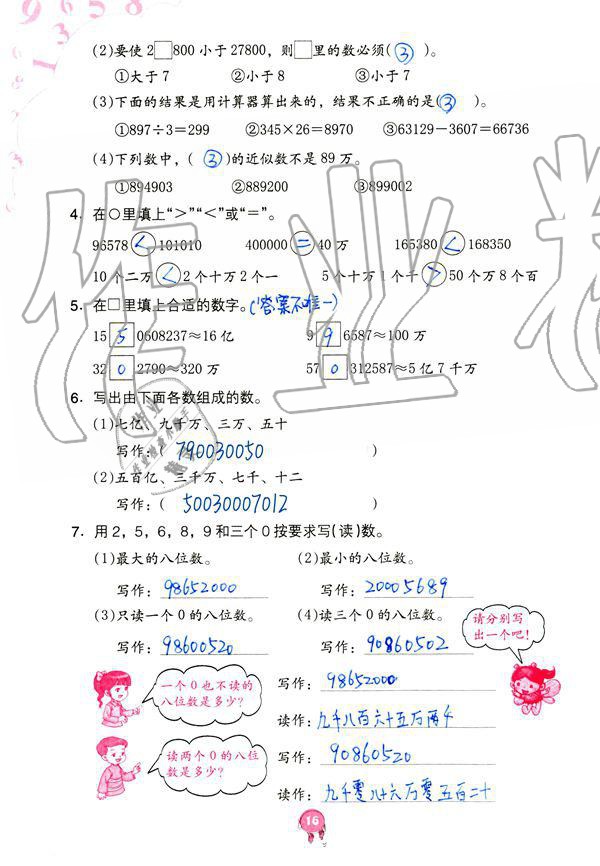 (2)要使2□800小于27800，则□里的数必须( ③ )。
①大于7 ②小于8 ③小于7
(3)下面的结果是用计算器算出来的，结果不正确的是( ③ )。
①897÷3=299 ②345×26=8970 ③63129-3607=66736
(4)下列数中，( ③ )的近似数不是89万。
①894903 ②889200 ③899002
4. 在○里填上“>”“<”或“=”。
96578 < 101010 400000 = 40万 165380 < 168350
10个二万 < 2个十万2个一 5个十万1个千 > 50个万8个百
5. 在□里填上合适的数字。(答案不唯一)
15 5 0608237≈16亿 9 9 6587≈100万
32 0 2790≈320万 57 0 312587≈5亿7千万
6. 写出由下面各数组成的数。
(1)七亿、九千万、三万、五十
写作：( 790030050 )
(2)五百亿、三千万、七千、十二
写作：( 50030007012 )
7. 用2，5，6，8，9和三个0按要求写(读)数。
(1)最大的八位数。 (2)最小的八位数。
写作：98652000 写作：20005689
(3)只读一个0的八位数。 (4)读三个0的八位数。
写作：98600520 写作：90860502
请分别写
出一个吧！
一个0也不读的
八位数是多少？
写作：98652000
读作：九千八百六十五万两千
读两个0的八位
数是多少？
写作：90860520
读作：九千零八十六万零五百二十
16
作业精